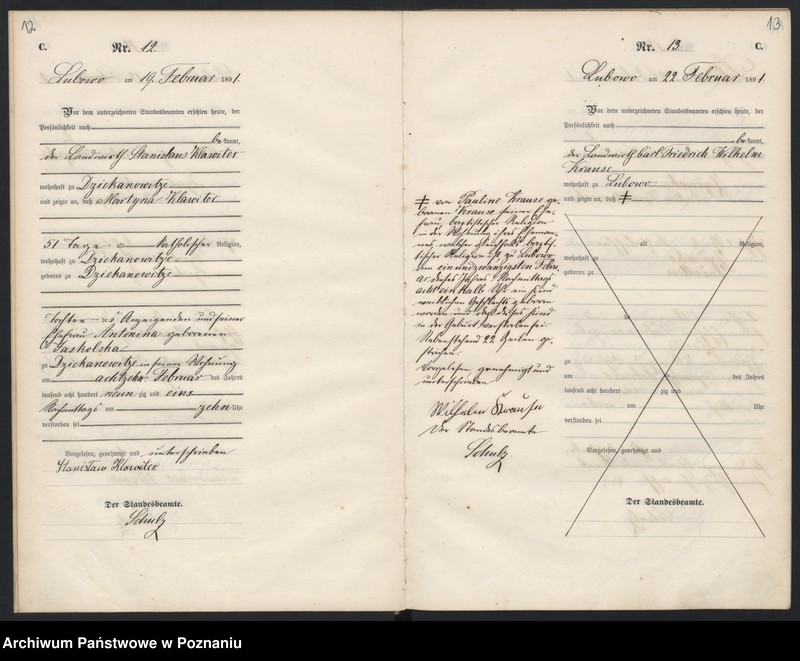 12
C.
Nr. 12.
Lubowo am 19 Februar 1891.
Vor dem unterzeichneten Standesbeamten erschien heute, der
Persönlichkeit nach
be kannt,
der Landwirth Stanislaus Klawiter
wohnhaft zu Dziekanowitze
und zeigte an, daß Martyna Klawiter
51 Tage alt Katholischer Religion,
wohnhaft zu Dziekanowitze
geboren zu Dziekanowitze
Tochter des Anzeigenden und seiner
Ehefrau Antonina geborenen
Jaskolska
zu Dziekanowitze in seiner Wohnung
am achtzehn Februar des Jahres
tausend acht hundert neun zig und eins
Nachmittags um zehn Uhr
verstorben sei
Vorgelesen, genehmigt und unterschrieben
Stanisław Klawiter
Der Standesbeamte.
Schulz
13
Nr. 13
C.
Lubowo am 22 Februar 1891.
Vor dem unterzeichneten Standesbeamten erschien heute, der
Persönlichkeit nach
be kannt,
der Landwirth Carl Friedrich Wilhelm
Krause
wohnhaft zu Lubowo
und zeigte an, daß ǂ
ǂ von Pauline Krause ge-
borenen Krause seiner Ehe-
frau, baptistischer Religion
in der Wohnung ihres Eheman-
nes, welcher gleichfalls baptis-
tischer Religion ist zu Lubowo
am einundzwanzigsten Febru-
ar dieses Jahres Nachmittags
acht ein halb Uhr ein Kind
weiblichen Geschlechts geboren
worden und daß dieses Kind
in der Geburt verstorben sei.
Nebenstehend 22 Zeilen ge-
strichen.
Vorgelesen genehmigt und
unterschrieben
Wilhelm Krause
Der Standesbeamte
Schulz
alt Religion,
wohnhaft zu
geboren zu
zu
am des Jahres
tausend acht hundert zig und
um Uhr
verstorben sei
Vorgelesen, genehmigt und
Der Standesbeamte.
Archiwum Państwowe w Poznaniu